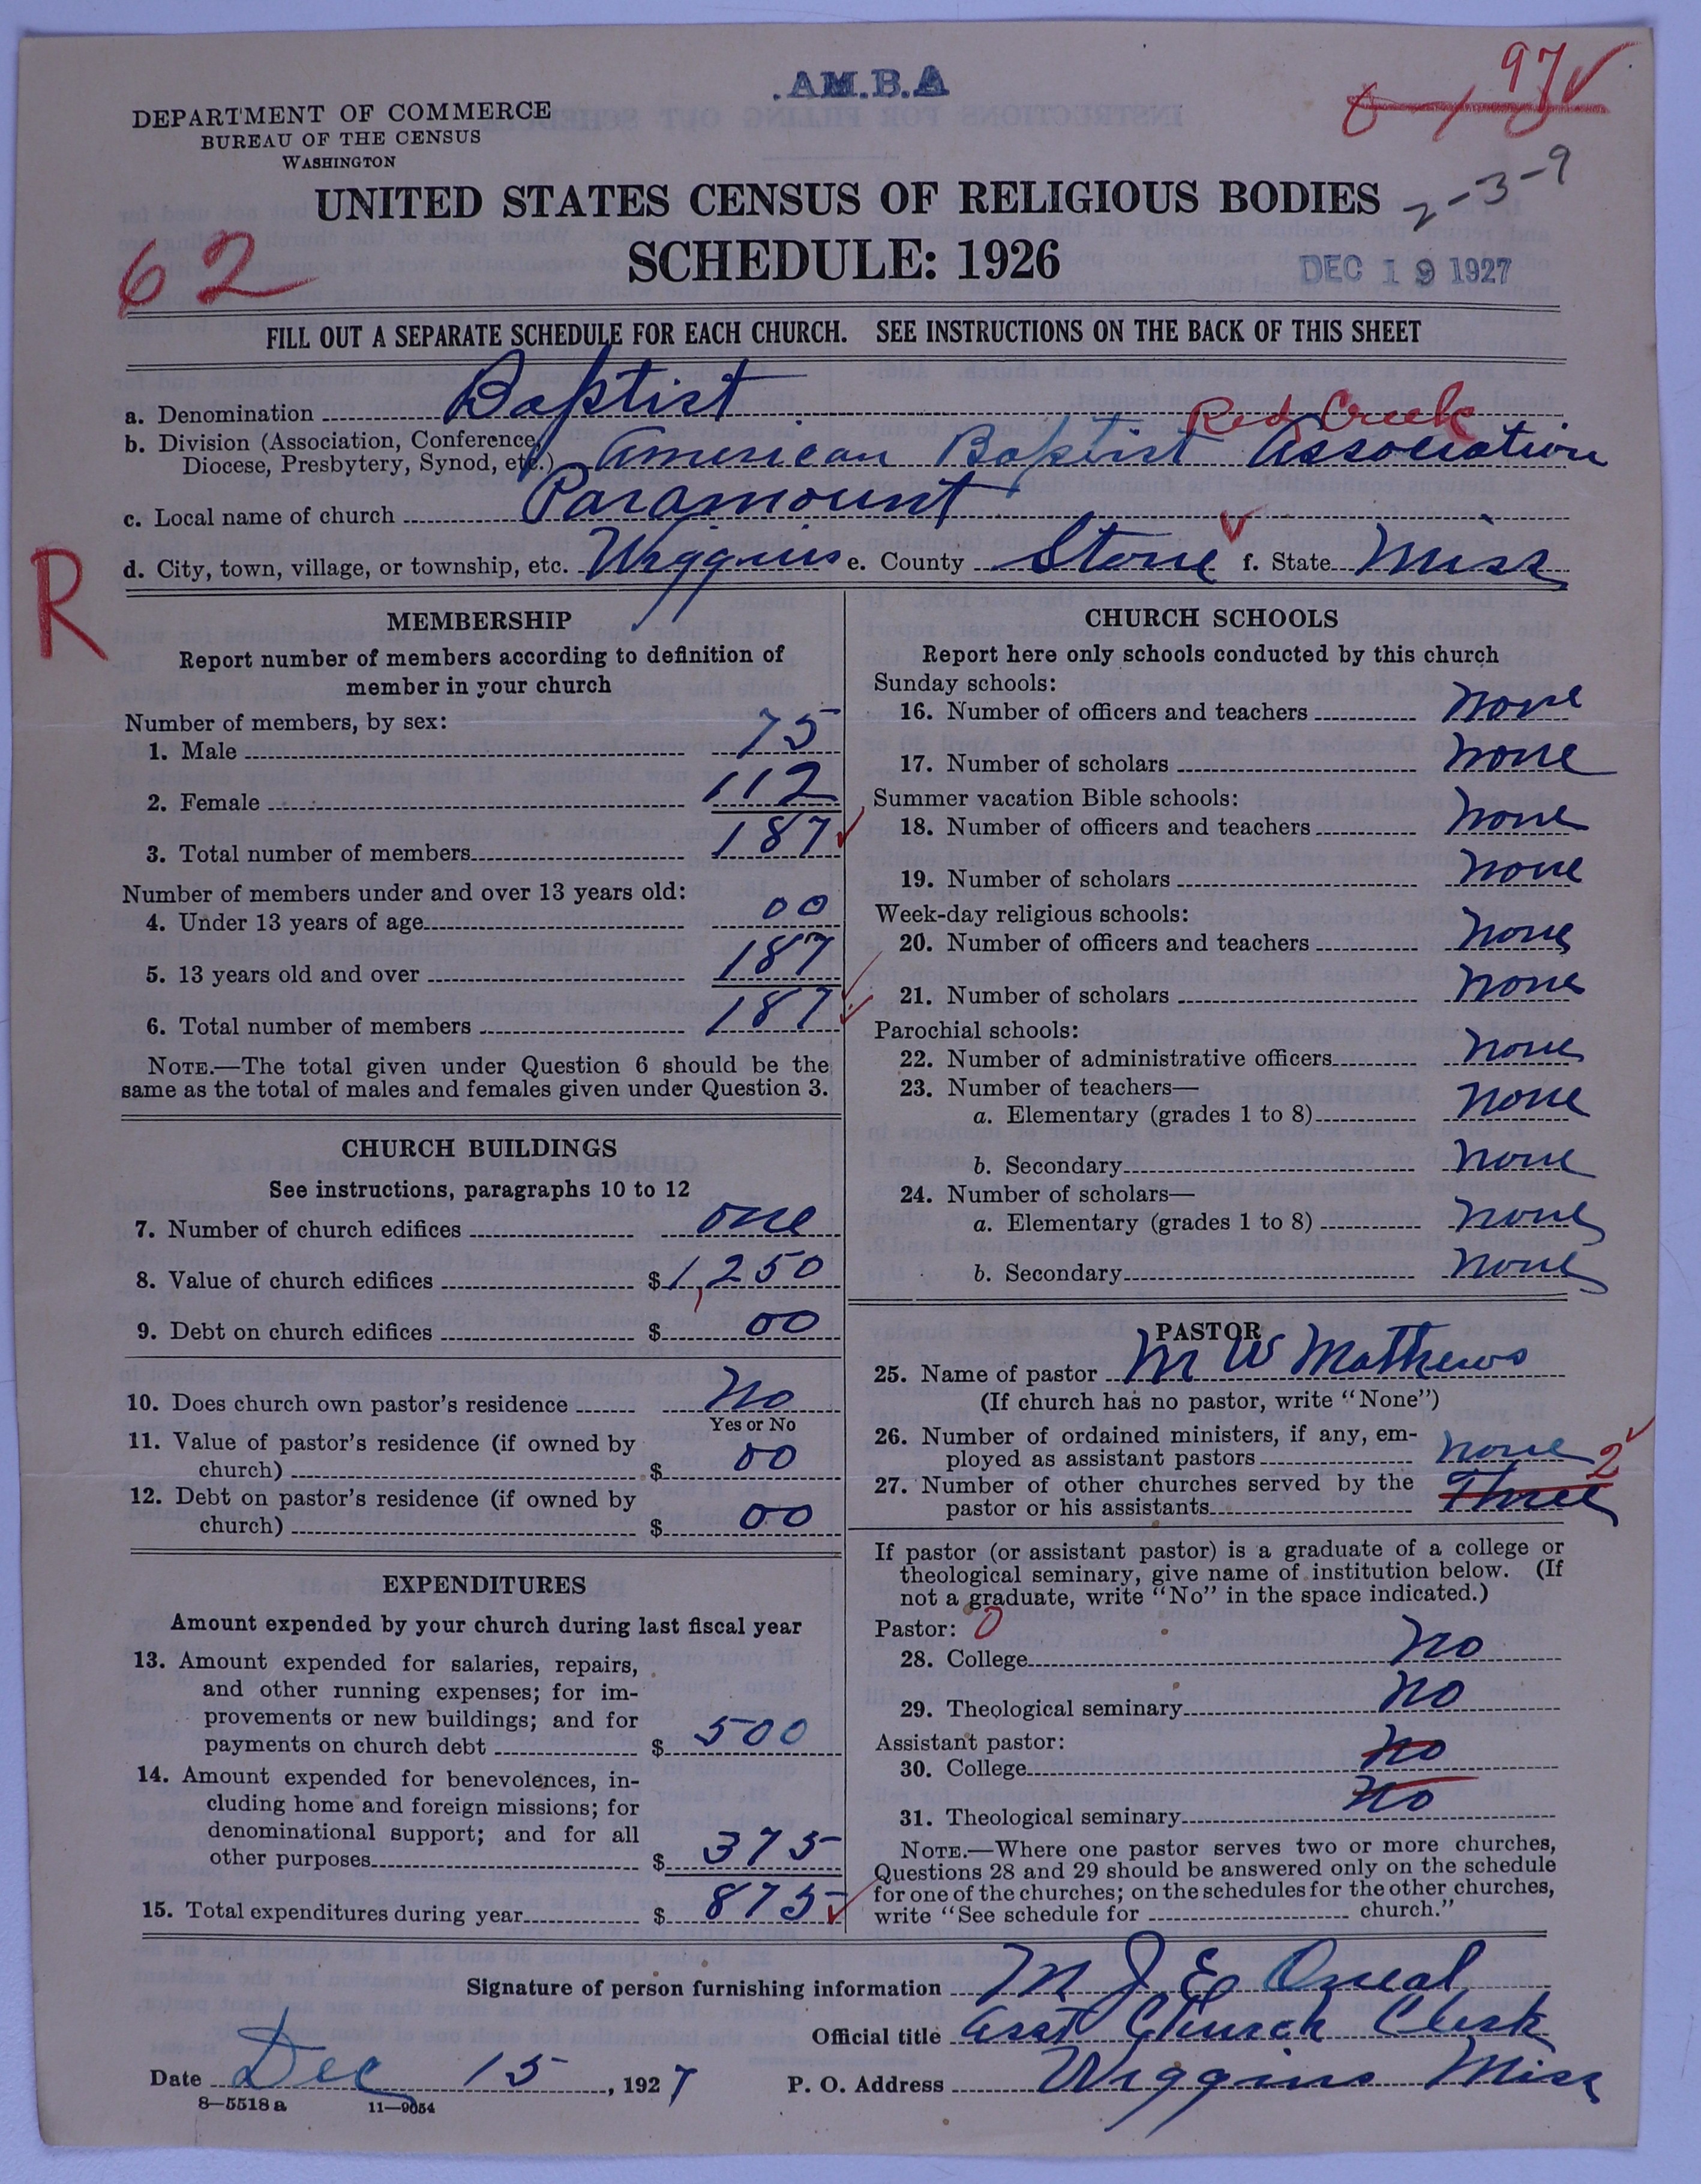 A.M.B.A
97✓
DEPARTMENT OF COMMERCE
BUREAU OF THE CENSUS
WASHINGTON
UNITED STATES CENSUS OF RELIGIOUS BODIES
2-3-9
SCHEDULE: 1926
62
DEC 19 1927
FILL OUT A SEPARATE SCHEDULE FOR EACH CHURCH. SEE INSTRUCTIONS ON THE BACK OF THIS SHEET
a. Denomination Baptist
Red Creek
b. Division (Association, Conference,
Diocese, Presbytery, Synod, etc.) American Baptist Association
c. Local name of church Paramount
R
d. City, town, village, or township, etc. Wiggins e. County Stone f. State Miss
MEMBERSHIP
Report number of members according to definition of
member in your church
Number of members, by sex:
1. Male 75
2. Female 112
3. Total number of members 187
Number of members under and over 13 years old:
4. Under 13 years of age 00
5. 13 years old and over 187
6. Total number of members 187
NOTE.—The total given under Question 6 should be the
same as the total of males and females given under Question 3.
CHURCH BUILDINGS
See instructions, paragraphs 10 to 12
7. Number of church edifices one
8. Value of church edifices $ 1,250
9. Debt on church edifices $ 00
10. Does church own pastor's residence no
Yes or No
11. Value of pastor's residence (if owned by
church) $ 00
12. Debt on pastor's residence (if owned by
church) $ 00
EXPENDITURES
Amount expended by your church during last fiscal year
13. Amount expended for salaries, repairs,
and other running expenses; for im-
provements or new buildings; and for
payments on church debt $ 500
14. Amount expended for benevolences, in-
cluding home and foreign missions; for
denominational support; and for all
other purposes $ 375
15. Total expenditures during year $ 875
CHURCH SCHOOLS
Report here only schools conducted by this church
Sunday schools:
16. Number of officers and teachers none
17. Number of scholars none
Summer vacation Bible schools:
18. Number of officers and teachers none
19. Number of scholars none
Week-day religious schools:
20. Number of officers and teachers none
21. Number of scholars none
Parochial schools:
22. Number of administrative officers none
23. Number of teachers—
a. Elementary (grades 1 to 8) none
b. Secondary none
24. Number of scholars—
a. Elementary (grades 1 to 8) none
b. Secondary none
PASTOR
25. Name of pastor M W Mathews
(If church has no pastor, write "None")
26. Number of ordained ministers, if any, em-
ployed as assistant pastors none
27. Number of other churches served by the
pastor or his assistants Three 2
If pastor (or assistant pastor) is a graduate of a college or
theological seminary, give name of institution below. (If
not a graduate, write "No" in the space indicated.)
Pastor: 0
28. College no
29. Theological seminary no
Assistant pastor:
30. College no
31. Theological seminary no
NOTE.—Where one pastor serves two or more churches,
Questions 28 and 29 should be answered only on the schedule
for one of the churches; on the schedules for the other churches,
write "See schedule for church."
Signature of person furnishing information M J E Oneal
Official title Asst Church Clerk
Date Dec 15, 1927 P. O. Address Wiggins Miss
8—5518a 11—9054